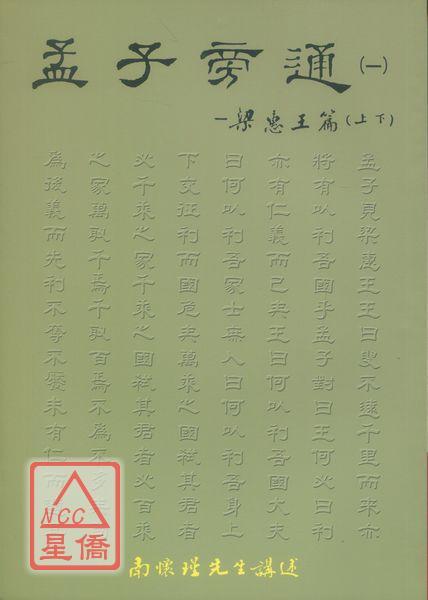 孟子旁通(一)
—梁惠王篇(上下)
孟子見梁惠王王曰叟不遠千里而來亦
將有以利吾國乎孟子對曰王何必曰利
亦有仁義而已矣王曰何以利吾國大夫
曰何以利吾家士庶人曰何以利吾身上
下交征利而國危矣萬乘之國弒其君者
必千乘之家千乘之國弒其君者必百乘
之家萬取千焉千取百焉不為不多
為後義而先利不奪不饜未有仁而
南懷瑾先生講述
NCC
星僑